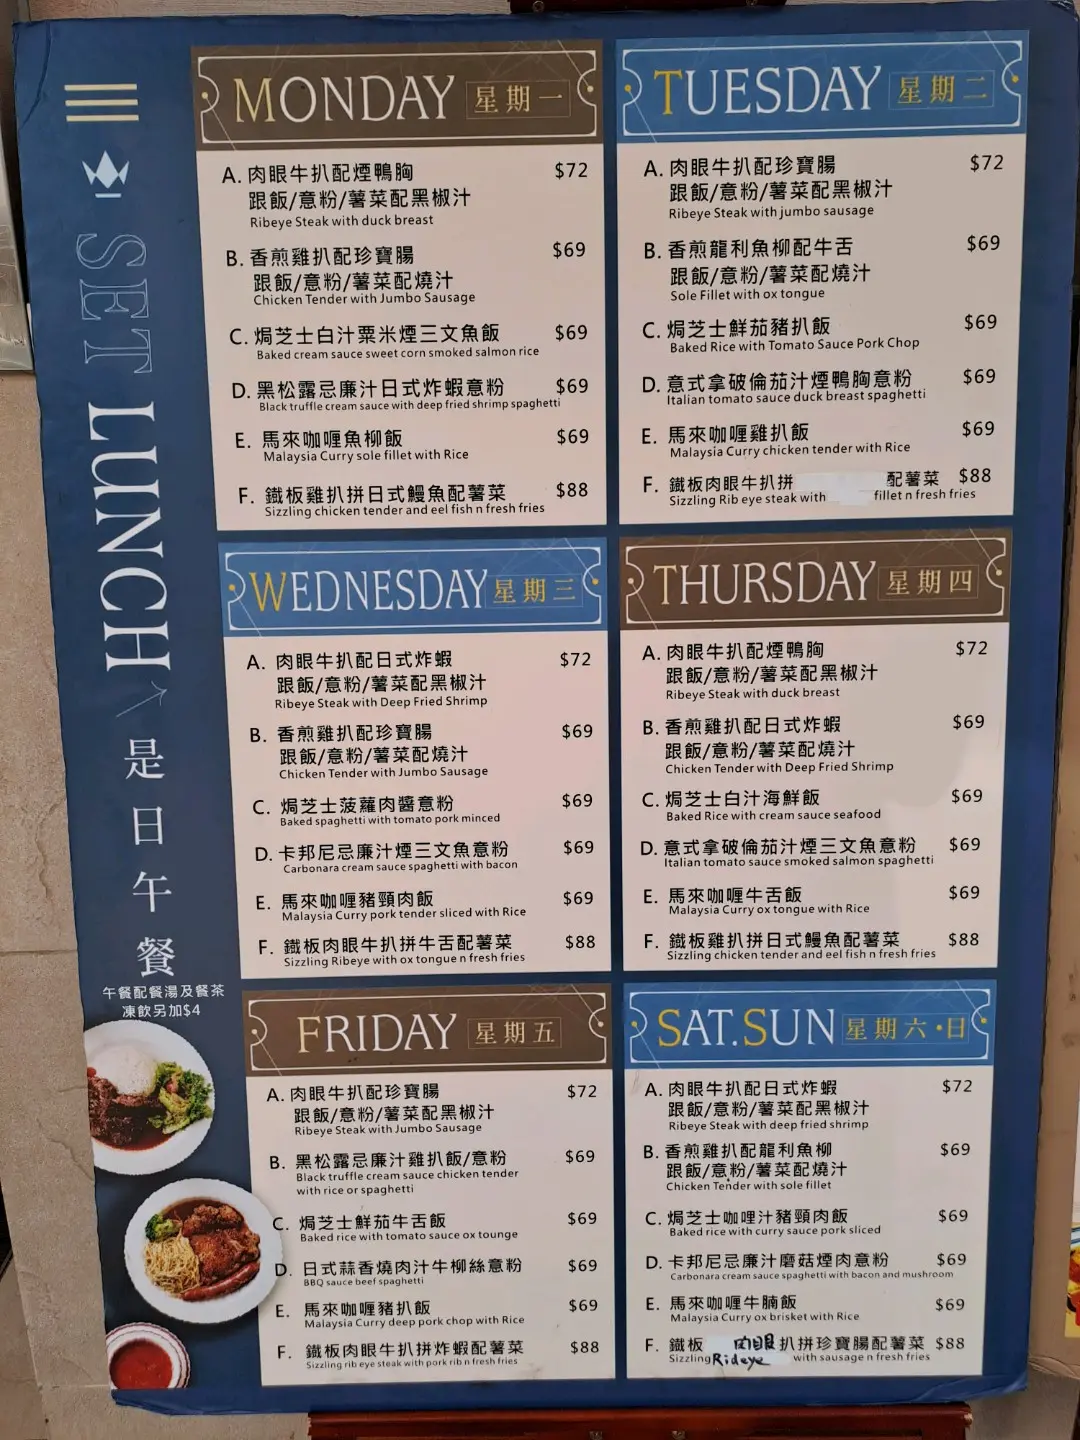 SET LUNCH
是日午餐
午餐配餐湯及餐茶
凍飲另加$4
MONDAY 星期一
A. 肉眼牛扒配煙鴨胸 $72
跟飯/意粉/薯菜配黑椒汁
Ribeye Steak with duck breast
B. 香煎雞扒配珍寶腸 $69
跟飯/意粉/薯菜配燒汁
Chicken Tender with Jumbo Sausage
C. 焗芝士白汁粟米煙三文魚飯 $69
Baked cream sauce sweet corn smoked salmon rice
D. 黑松露忌廉汁日式炸蝦意粉 $69
Black truffle cream sauce with deep fried shrimp spaghetti
E. 馬來咖喱魚柳飯 $69
Malaysia Curry sole fillet with Rice
F. 鐵板雞扒拼日式鰻魚配薯菜 $88
Sizzling chicken tender and eel fish n fresh fries
TUESDAY 星期二
A. 肉眼牛扒配珍寶腸 $72
跟飯/意粉/薯菜配黑椒汁
Ribeye Steak with jumbo sausage
B. 香煎龍利魚柳配牛舌 $69
跟飯/意粉/薯菜配燒汁
Sole Fillet with ox tongue
C. 焗芝士鮮茄豬扒飯 $69
Baked Rice with Tomato Sauce Pork Chop
D. 意式拿破倫茄汁煙鴨胸意粉 $69
Italian tomato sauce duck breast spaghetti
E. 馬來咖喱雞扒飯 $69
Malaysia Curry chicken tender with Rice
F. 鐵板肉眼牛扒拼 配薯菜 $88
Sizzling Rib eye steak with fillet n fresh fries
WEDNESDAY 星期三
A. 肉眼牛扒配日式炸蝦 $72
跟飯/意粉/薯菜配黑椒汁
Ribeye Steak with Deep Fried Shrimp
B. 香煎雞扒配珍寶腸 $69
跟飯/意粉/薯菜配燒汁
Chicken Tender with Jumbo Sausage
C. 焗芝士菠蘿肉醬意粉 $69
Baked spaghetti with tomato pork minced
D. 卡邦尼忌廉汁煙三文魚意粉 $69
Carbonara cream sauce spaghetti with bacon
E. 馬來咖喱豬頸肉飯 $69
Malaysia Curry pork tender sliced with Rice
F. 鐵板肉眼牛扒拼牛舌配薯菜 $88
Sizzling Ribeye with ox tongue n fresh fries
THURSDAY 星期四
A. 肉眼牛扒配煙鴨胸 $72
跟飯/意粉/薯菜配黑椒汁
Ribeye Steak with duck breast
B. 香煎雞扒配日式炸蝦 $69
跟飯/意粉/薯菜配燒汁
Chicken Tender with Deep Fried Shrimp
C. 焗芝士白汁海鮮飯 $69
Baked Rice with cream sauce seafood
D. 意式拿破倫茄汁煙三文魚意粉 $69
Italian tomato sauce smoked salmon spaghetti
E. 馬來咖喱牛舌飯 $69
Malaysia Curry ox tongue with Rice
F. 鐵板雞扒拼日式鰻魚配薯菜 $88
Sizzling chicken tender and eel fish n fresh fries
FRIDAY 星期五
A. 肉眼牛扒配珍寶腸 $72
跟飯/意粉/薯菜配黑椒汁
Ribeye Steak with Jumbo Sausage
B. 黑松露忌廉汁雞扒飯/意粉 $69
Black truffle cream sauce chicken tender
with rice or spaghetti
C. 焗芝士鮮茄牛舌飯 $69
Baked rice with tomato sauce ox tounge
D. 日式蒜香燒肉汁牛柳絲意粉 $69
BBQ sauce beef spaghetti
E. 馬來咖喱豬扒飯 $69
Malaysia Curry deep pork chop with Rice
F. 鐵板肉眼牛扒拼炸蝦配薯菜 $88
Sizzling rib eye steak with pork rib n fresh fries
SAT.SUN 星期六·日
A. 肉眼牛扒配日式炸蝦 $72
跟飯/意粉/薯菜配黑椒汁
Ribeye Steak with deep fried shrimp
B. 香煎雞扒配龍利魚柳 $69
跟飯/意粉/薯菜配燒汁
Chicken Tender with sole fillet
C. 焗芝士咖哩汁豬頸肉飯 $69
Baked rice with curry sauce pork sliced
D. 卡邦尼忌廉汁磨菇煙肉意粉 $69
Carbonara cream sauce spaghetti with bacon and mushroom
E. 馬來咖喱牛腩飯 $69
Malaysia Curry ox brisket with Rice
F. 鐵板 肉眼 扒拼珍寶腸配薯菜 $88
Sizzling Rideye with sausage n fresh fries